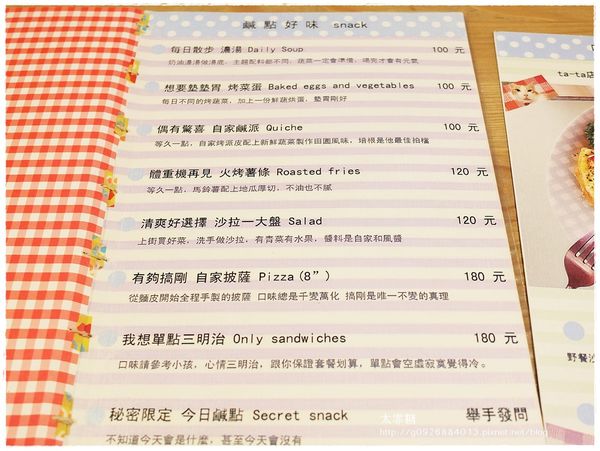 鹹點好味 snack
每日散步 濃湯 Daily Soup 100 元
奶油濃湯做湯底，主題配料都不同，蔬菜一定會準備，喝完才會有元氣
想要墊墊胃 烤菜蛋 Baked eggs and vegetables 100 元
每日不同的烤蔬菜，加上一份鮮蔬烘蛋，墊胃剛好
偶有驚喜 自家鹹派 Quiche 100 元
等久一點，自家烤派皮配上新鮮蔬菜製作田園風味，培根是他最佳拍檔
體重機再見 火烤薯條 Roasted fries 120 元
等久一點，馬鈴薯配上地瓜厚切，不油也不膩
清爽好選擇 沙拉一大盤 Salad 120 元
上街買好菜，洗手做沙拉，有青菜有水果，醬料是自家和風醬
有夠搞剛 自家披薩 Pizza(8”) 180 元
從麵皮開始全程手製的披薩 口味總是千變萬化 搞剛是唯一不變的真理
我想單點三明治 Only sandwiches 180 元
口味請參考小孩，心情三明治，跟你保證套餐划算，單點會空虛寂寞覺得冷。
秘密限定 今日鹹點 Secret snack 舉手發問
不知道今天會是什麼，甚至今天會沒有
ta-ta店
野餐沙
http://g0926884013.pixnet.net/blog